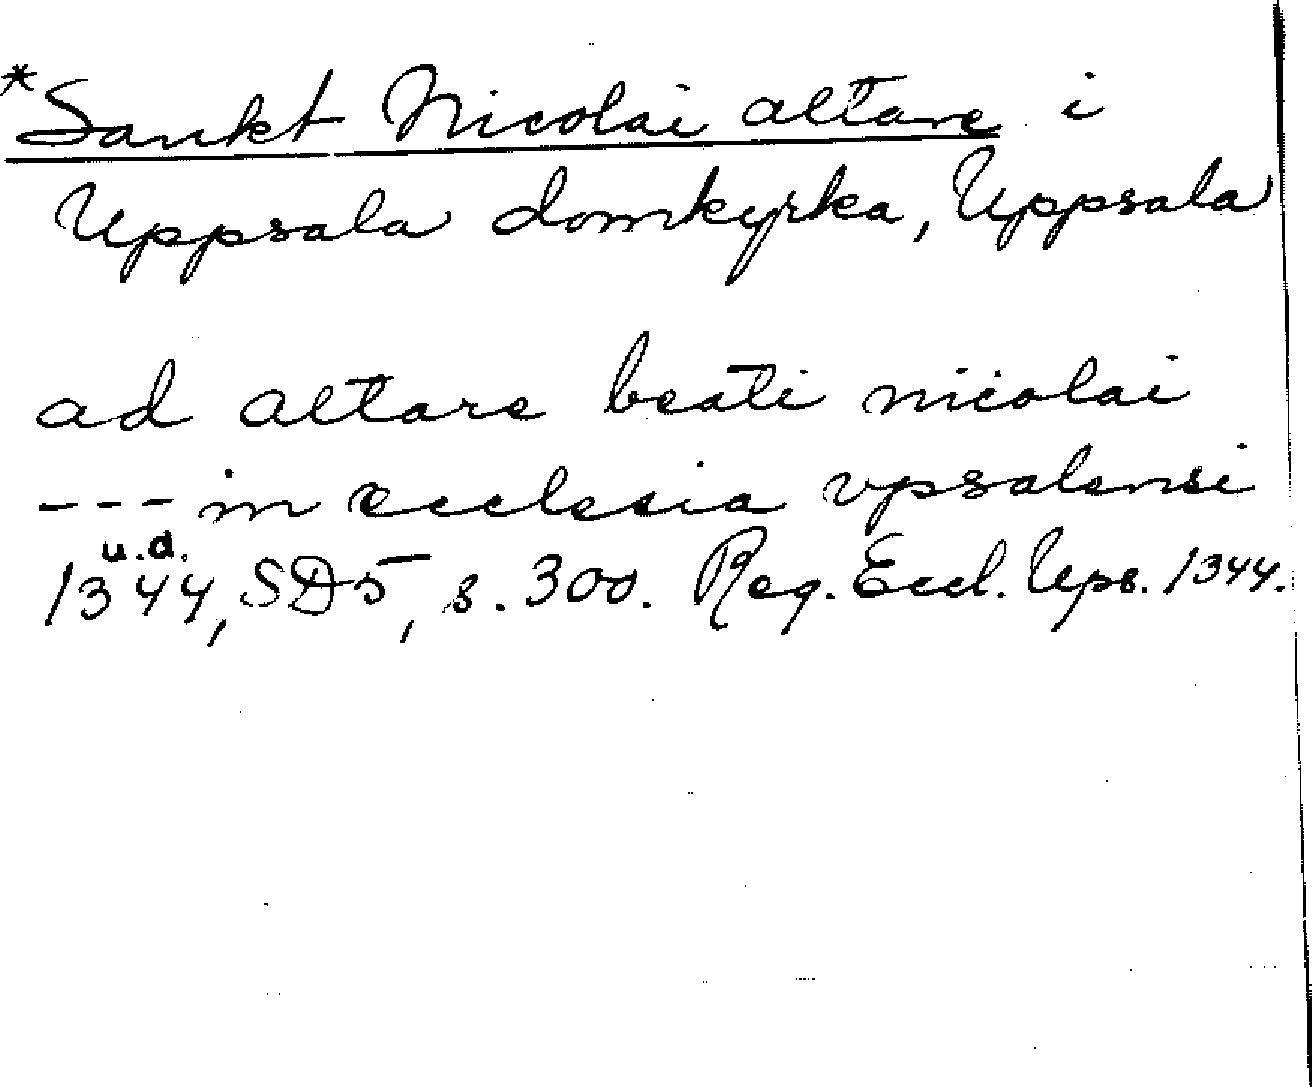 *Sankt Nicolai altare i
Uppsala domkyrka, Uppsala
ad altare beati nicolai
--- in ecclesia vpsalensi
u.d.
1344, SD5, s. 300. Reg. Eccl. Ups. 1344.